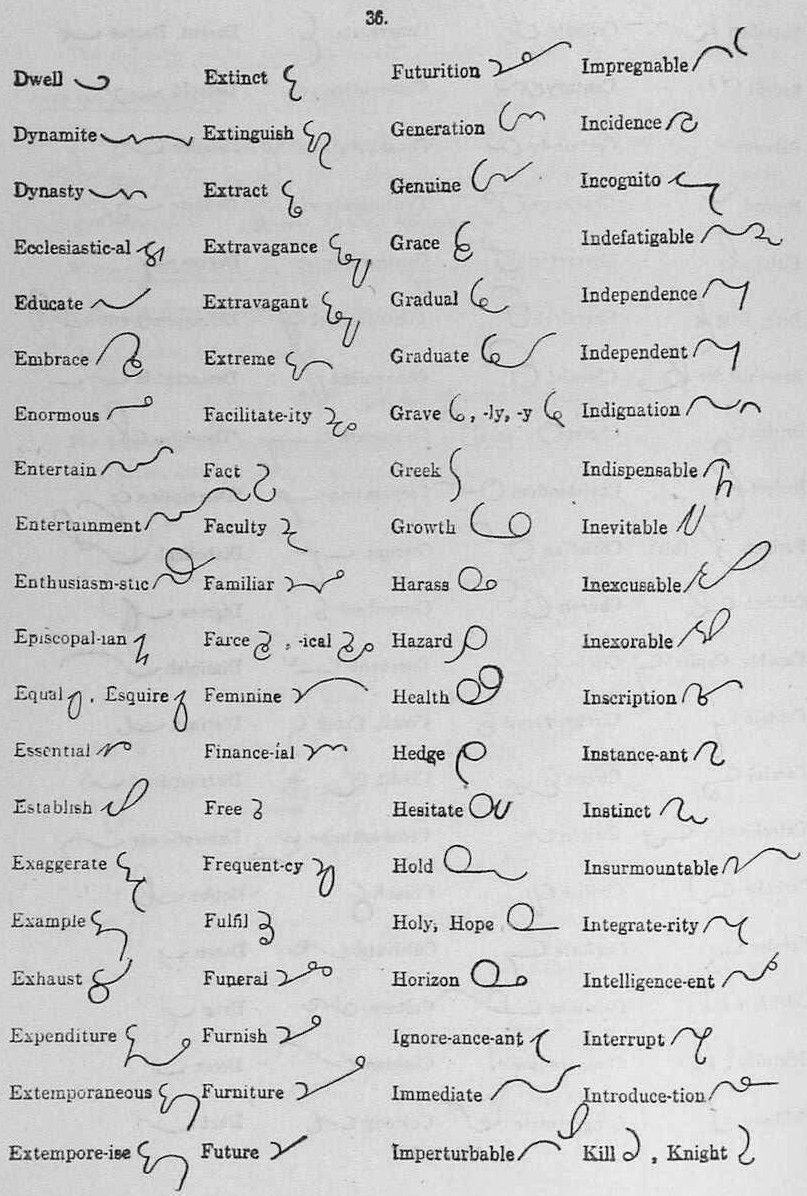 36.
Dwell Extinct Futurition Impregnable
Dynamite Extinguish Generation Incidence
Dynasty Extract Genuine Incognito
Ecclesiastic-al Extravagance Grace Indefatigable
Educate Extravagant Gradual Independence
Embrace Extreme Graduate Independent
Enormous Facilitate-ity Grave , -ly, -y Indignation
Entertain Fact Greek Indispensable
Entertainment Faculty Growth Inevitable
Enthusiasm-stic Familiar Harass Inexcusable
Episcopal-ian Farce , -ical Hazard Inexorable
Equal , Esquire Feminine Health Inscription
Essential Finance-ial Hedge Instance-ant
Establish Free Hesitate Instinct
Exaggerate Frequent-cy Hold Insurmountable
Example Fulfil Holy, Hope Integrate-rity
Exhaust Funeral Horizon Intelligence-ent
Expenditure Furnish Ignore-ance-ant Interrupt
Extemporaneous Furniture Immediate Introduce-tion
Extempore-ise Future Imperturbable Kill , Knight